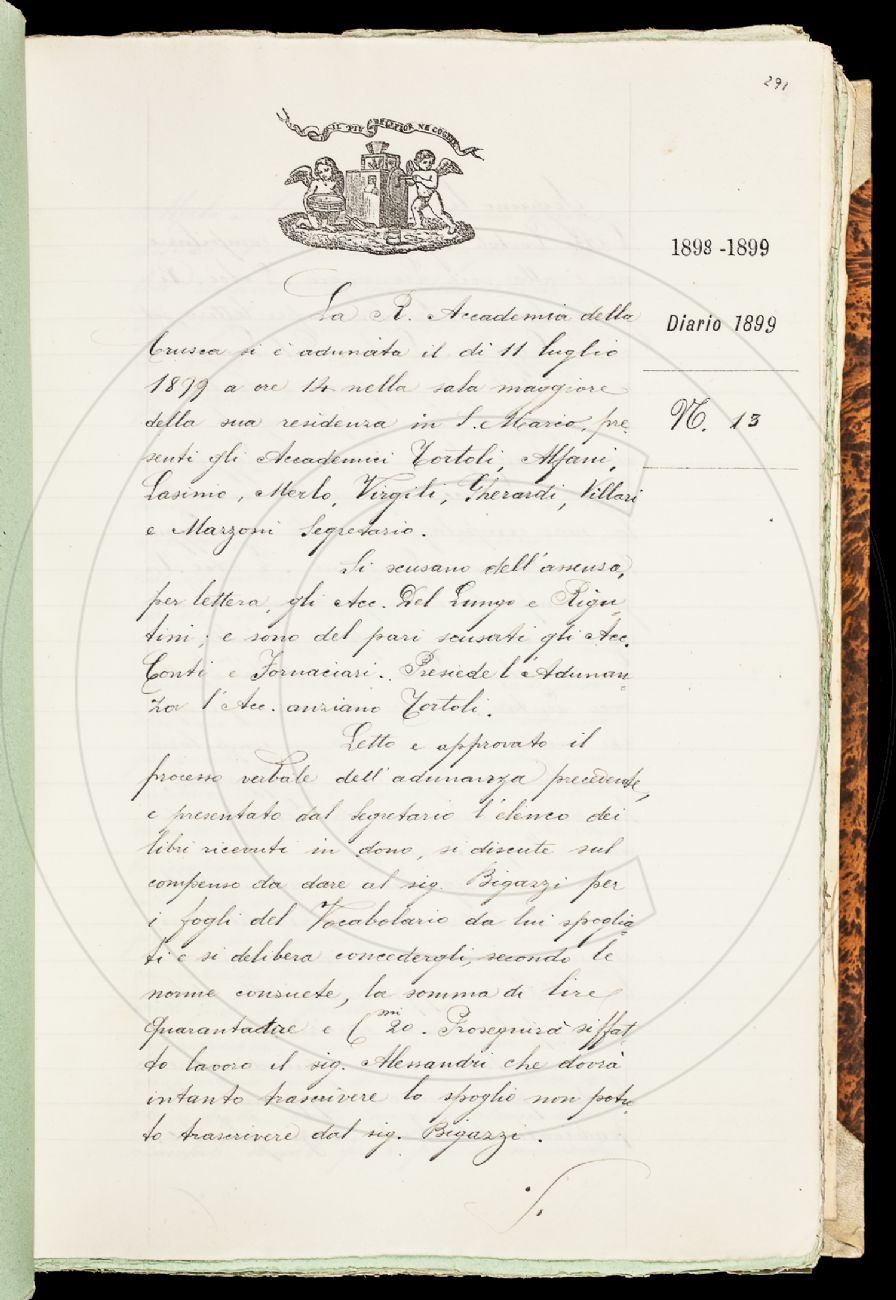 291
IL PIÙ BEL FIOR NE COGLIE
1898-1899
Diario 1899
N. 13
La R. Accademia della
Crusca si è adunata il dì 11 luglio
1899 a ore 14 nella sala maggiore
della sua residenza in S. Marco, pre-
senti gli Accademici Tortoli, Alfani,
Lasinio, Merlo, Virgili, Gherardi, Villari
e Mazzoni Segretario.
Si scusano dell'assenza,
per lettera, gli Acc. Del Lungo e Rigu-
tini; e sono del pari scusati gli Acc.
Conti e Fornaciari. Presiede l'Adunan-
za l'Acc. anziano Tortoli.
Letto e approvato il
processo verbale dell'adunanza precedente,
e presentato dal Segretario l'elenco dei
libri ricevuti in dono, si discute sul
compenso da dare al sig. Bigazzi per
i fogli del Vocabolario da lui spoglia-
ti e si delibera concedergli, secondo le
norme consuete, la somma di lire
quarantatre e Cmi 20. Proseguirà siffat-
to lavoro il sig. Alessandri che dovrà
intanto trascrivere lo spoglio non potu-
to trascrivere dal sig. Bigazzi.